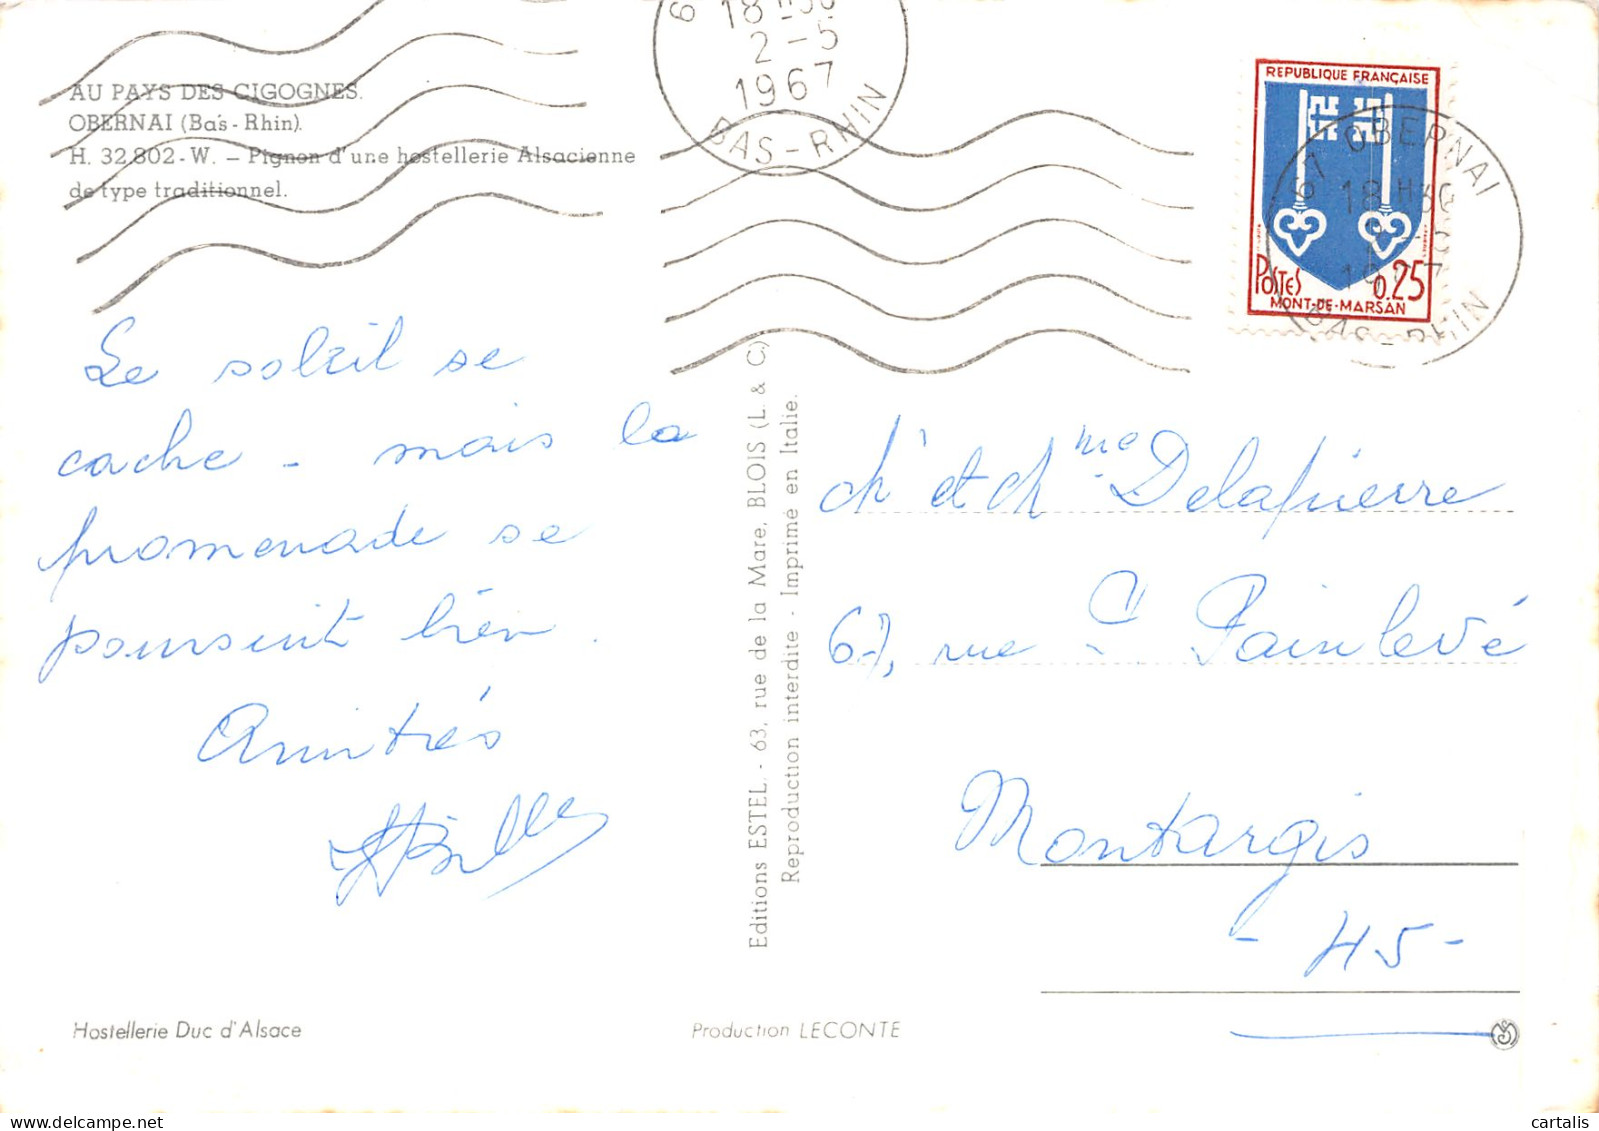 AU PAYS DES CIGOGNES.
OBERNAI (Bas-Rhin).
H. 32.802-W. — Pignon d'une hostellerie Alsacienne
de type traditionnel.
18 H 30
2-5
1967
BAS-RHIN
REPUBLIQUE FRANÇAISE
POSTES 0,25
MONT-DE-MARSAN
67 OBERNAI
18 H 30
BAS-RHIN
Le soleil se
cache - mais la
promenade se
poursuit bien.
Amitiés
Editions ESTEL. - 63, rue de la Mare, BLOIS (L. & C.)
Reproduction interdite - Imprimé en Italie.
M et Mme Delapierre
67, rue P. Painlevé
Montargis
- 45 -
Hostellerie Duc d'Alsace
Production LECONTE
cartalis